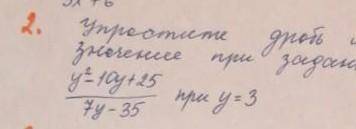 2. Упростите дробь и
значение при задан
y²-10y+25
7y-35
при y=3